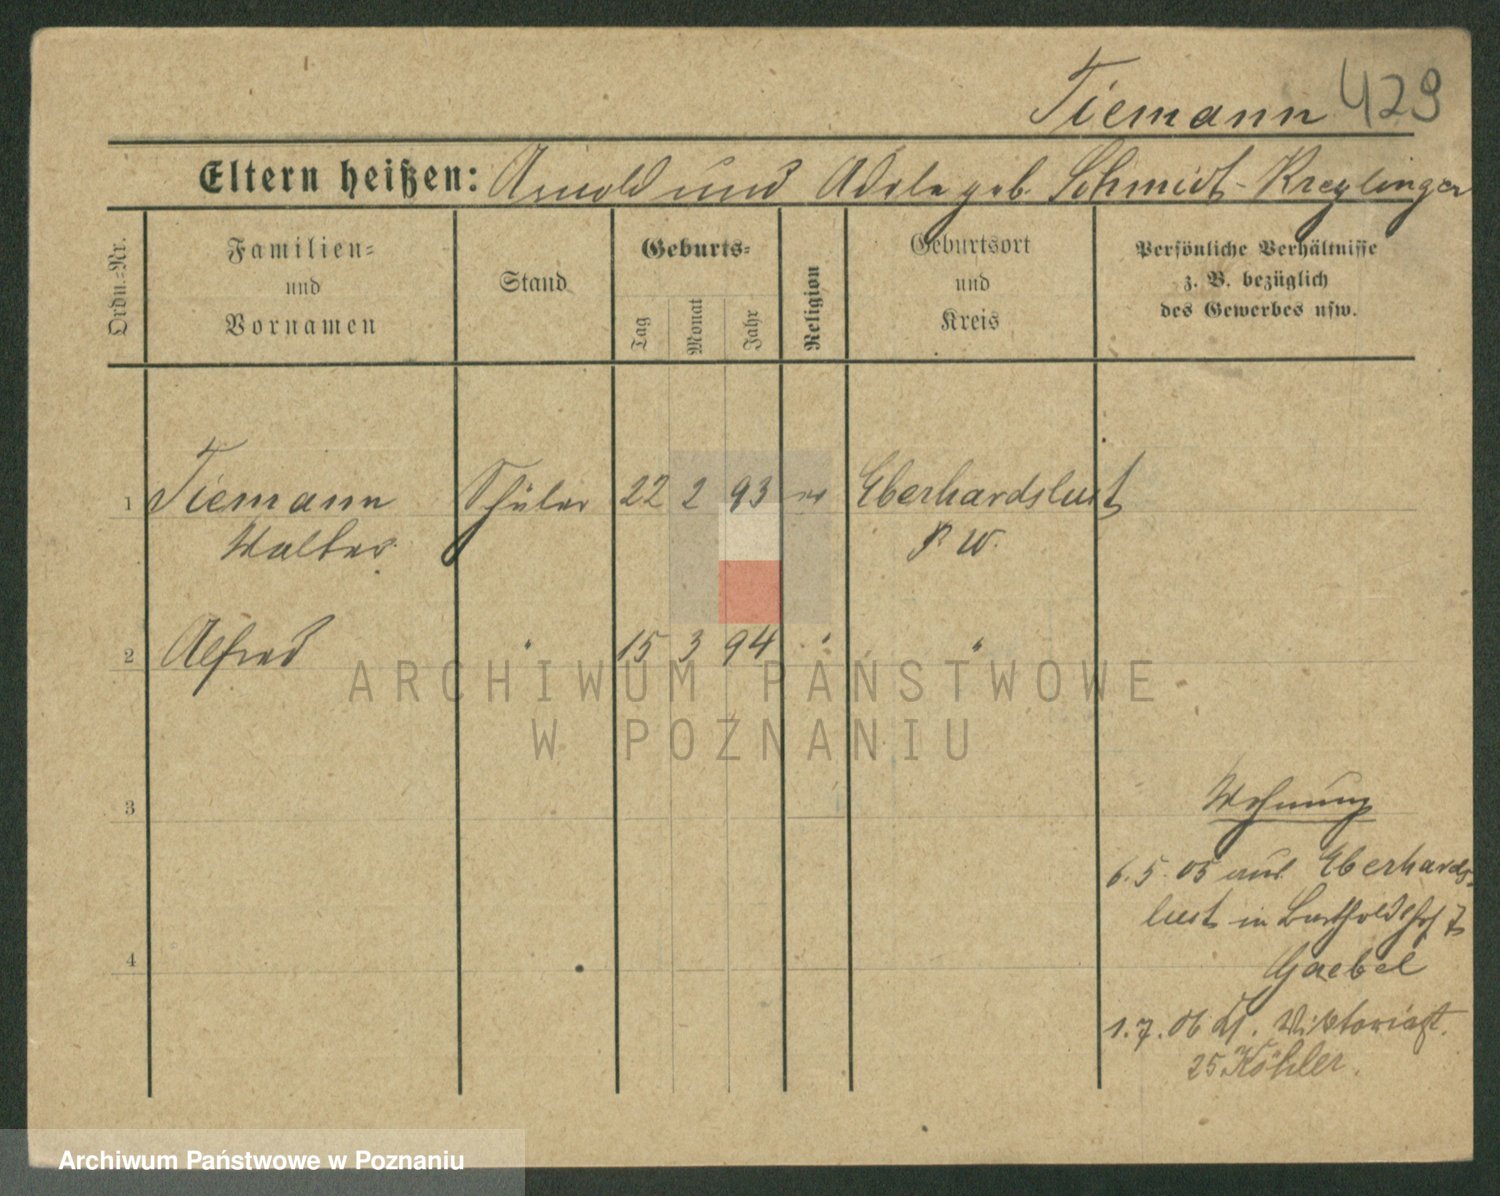 Tiemann 429
Eltern heißen: Arnold und Adele geb. Schmidt-Kreylinger
Ordn.-Nr.
Familien-
und
Vornamen
Stand
Geburts-
Tag
Monat
Jahr
Religion
Geburtsort
und
Kreis
Persönliche Verhältnisse
z. B. bezüglich
des Gewerbes usw.
1 Tiemann Schüler 22 2 93 ev Eberhardslust
Walter P. W.
2 Alfred " 15 3 94 " "
ARCHIWUM PAŃSTWOWE
W POZNANIU
3
Wohnung
6.5.05 aus Eberhards-
lust in Bartholdshof
4
Gaebel
1.7.06 Viktoriast.
25 Köhler.
Archiwum Państwowe w Poznaniu